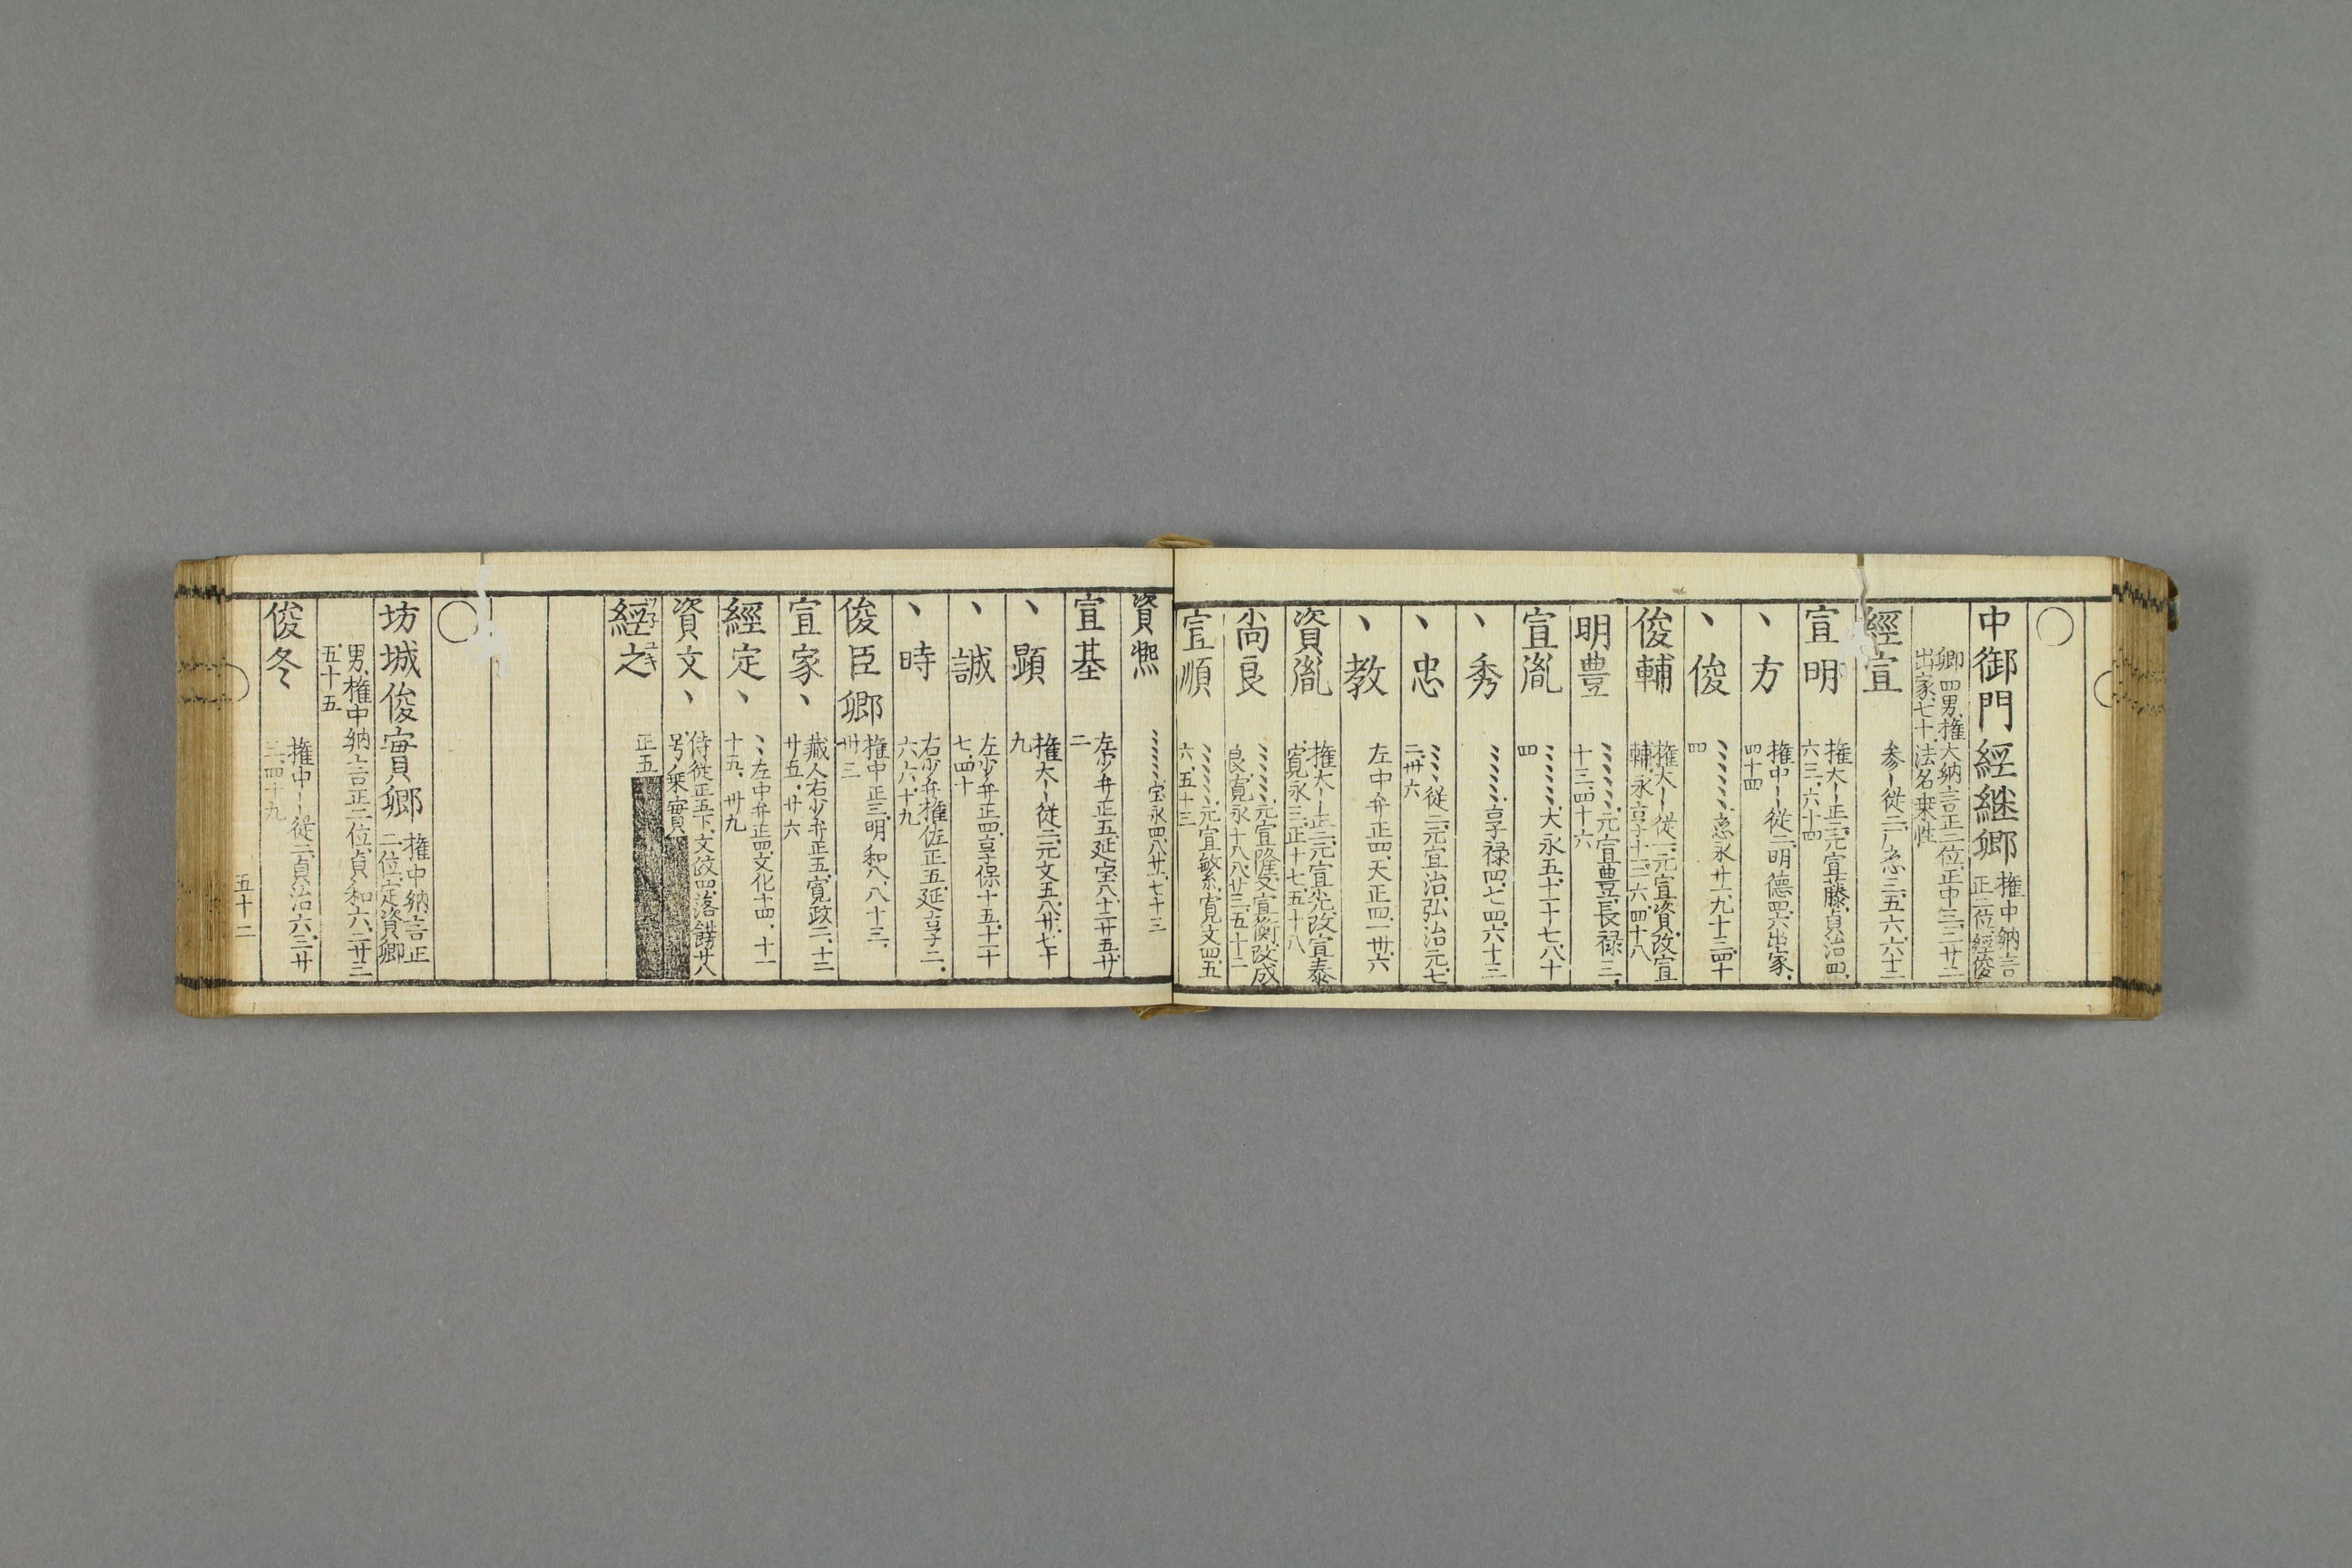 中御門經継卿 権中納言正二位經俊
卿四男、権大納言正二位、正中三、二廿二
出家、七十、法名乗性
經宣 参ー従二、广応三、五六、六十二
宣明 権大ー正二、元宣藤、貞治四、
六三、六十四
丶方 権中ー従二、明徳四、六出家、
四十四
丶俊 丶丶丶丶丶応永廿一、九十三、四十
四
俊輔 権大ー従一、元宣資、改宣
輔、永享十一、三六、四十八
明豊 丶丶丶丶丶元宣豊、長禄三、
十三、四十六
宣胤 丶丶丶丶丶大永五、十一十七、八十
四
丶秀 丶丶丶丶丶享禄四、七四、六十三
丶忠 丶丶丶従二、元宣治、弘治元、七
二、卅六
丶教 左中弁正四、天正四、一卅、六
資胤 権大ー正二、元宣光、改宣泰、
寛永三、正十七、五十八
尚良 丶丶丶丶丶元宣隆、又宣衡、改成
良、寛永十八、八廿三、五十二
宣順 丶丶丶丶丶元宣繁、寛文四、五
六、五十三
資熈 丶丶丶丶丶宝永四、八廿一、七十三
宣基 左少弁正五、延宝八、十二廿五、廿
二
丶顕 権大ー従二、元文五、八廿、七十
九
丶誠 左少弁正四、享保十五、十一十
七、四十
丶時 右少弁権佐正五、延享二、
六六、十九
俊臣卿 権中正三、明和八、八十三、
卅三
宣家丶 蔵人右少弁正五、寛政二、十二
廿五、廿六
經定丶 丶丶左中弁正四、文化十四、十一
十五、卅九
資文丶 侍従正五下、文政四、落餝、廿八
号乗實
經之 正五
坊城俊實卿 権中納言正
二位、定資卿
男、権中納言正二位、貞和六、二廿三
五十五
俊冬 権中ー従二、貞治六、三廿
三、四十九
五十二